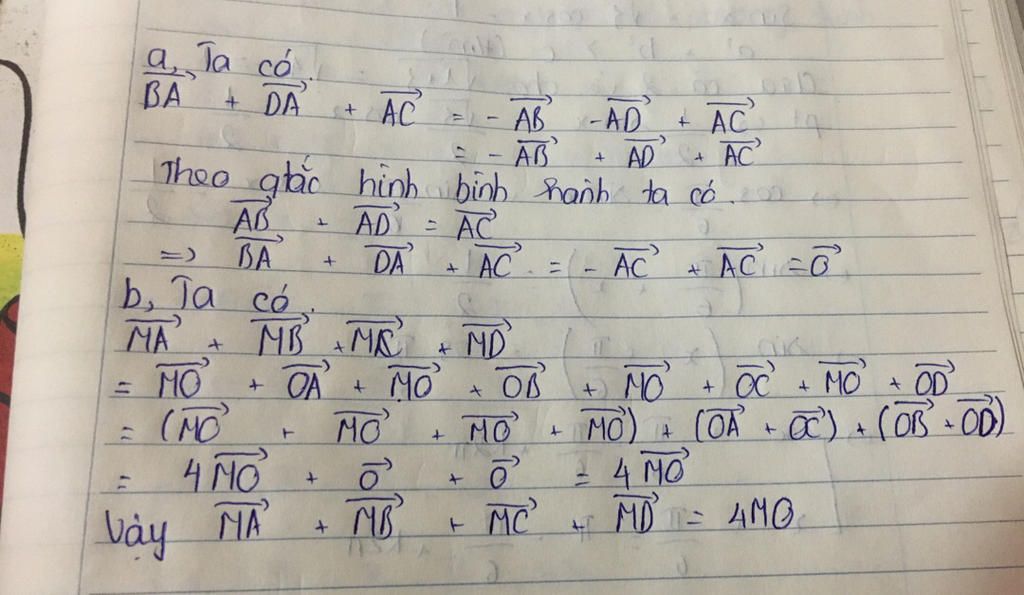 a, Ta có.
BA→ + DA→ + AC→ = - AB→ - AD→ + AC→
= - AB→ + AD→ + AC→
Theo qtắc hình bình hành ta có.
AB→ + AD→ = AC→
=> BA→ + DA→ + AC→ = - AC→ + AC→ = 0→
b, Ta có.
MA→ + MB→ + MC→ + MD→
= MO→ + OA→ + MO→ + OB→ + MO→ + OC→ + MO→ + OD→
= (MO→ + MO→ + MO→ + MO→) + (OA→ + OC→) + (OB→ + OD→)
= 4MO→ + 0→ + 0→ = 4MO→
Vậy MA→ + MB→ + MC→ + MD→ = 4MO